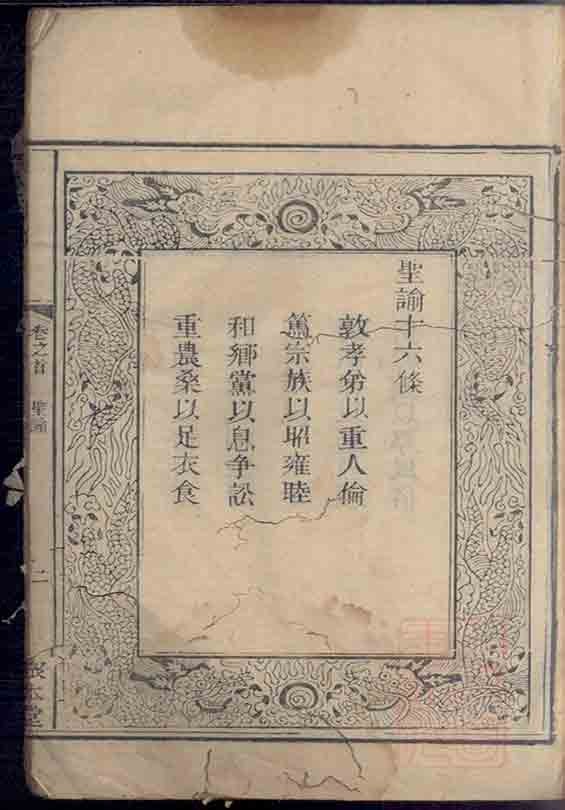 聖諭十六條
敦孝弟以重人倫
篤宗族以昭雍睦
和鄉黨以息争訟
重農桑以足衣食
卷之首 聖諭
二